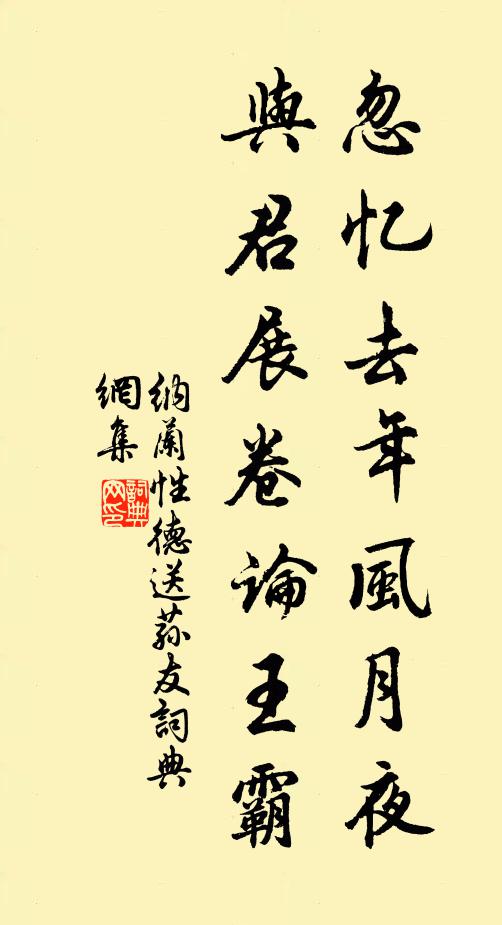 忽忆去年風月夜
與君展卷論王霸
納蘭性德送蓀友詞典
網集
詞典
网印